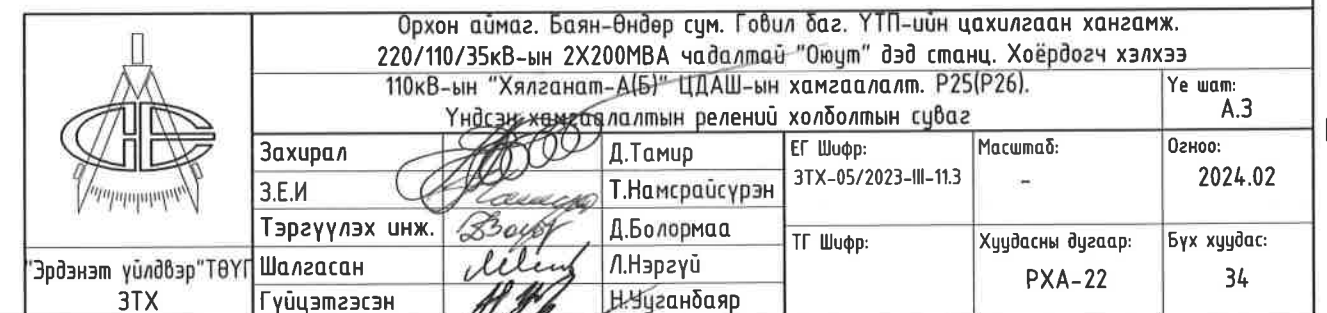 Орхон аймаг. Баян-Өндөр сум. Говил баг. ҮТП-ийн цахилгаан хангамж.
220/110/35кВ-ын 2Х200МВА чадалтай "Оюут" дэд станц. Хоёрдогч хэлхээ
110кВ-ын "Хялганат-А(Б)" ЦДАШ-ын хамгаалалт. Р25(Р26).
Үндсэн хамгаалалтын релений холболтын суваг
Үе шат:
А.3
Захирал
Д.Тамир
З.Е.И
Т.Намсрайсүрэн
Тэргүүлэх инж.
Д.Болормаа
Шалгасан
Л.Нэргүй
Гүйцэтгэсэн
Н.Чуганбаяр
ЕГ Шифр:
ЗТХ-05/2023-III-11.3
Масштаб:
-
Огноо:
2024.02
ТГ Шифр:
Хуудасны дугаар:
РХА-22
Бүх хуудас:
34
"Эрдэнэт үйлдвэр"ТӨҮГ
ЗТХ